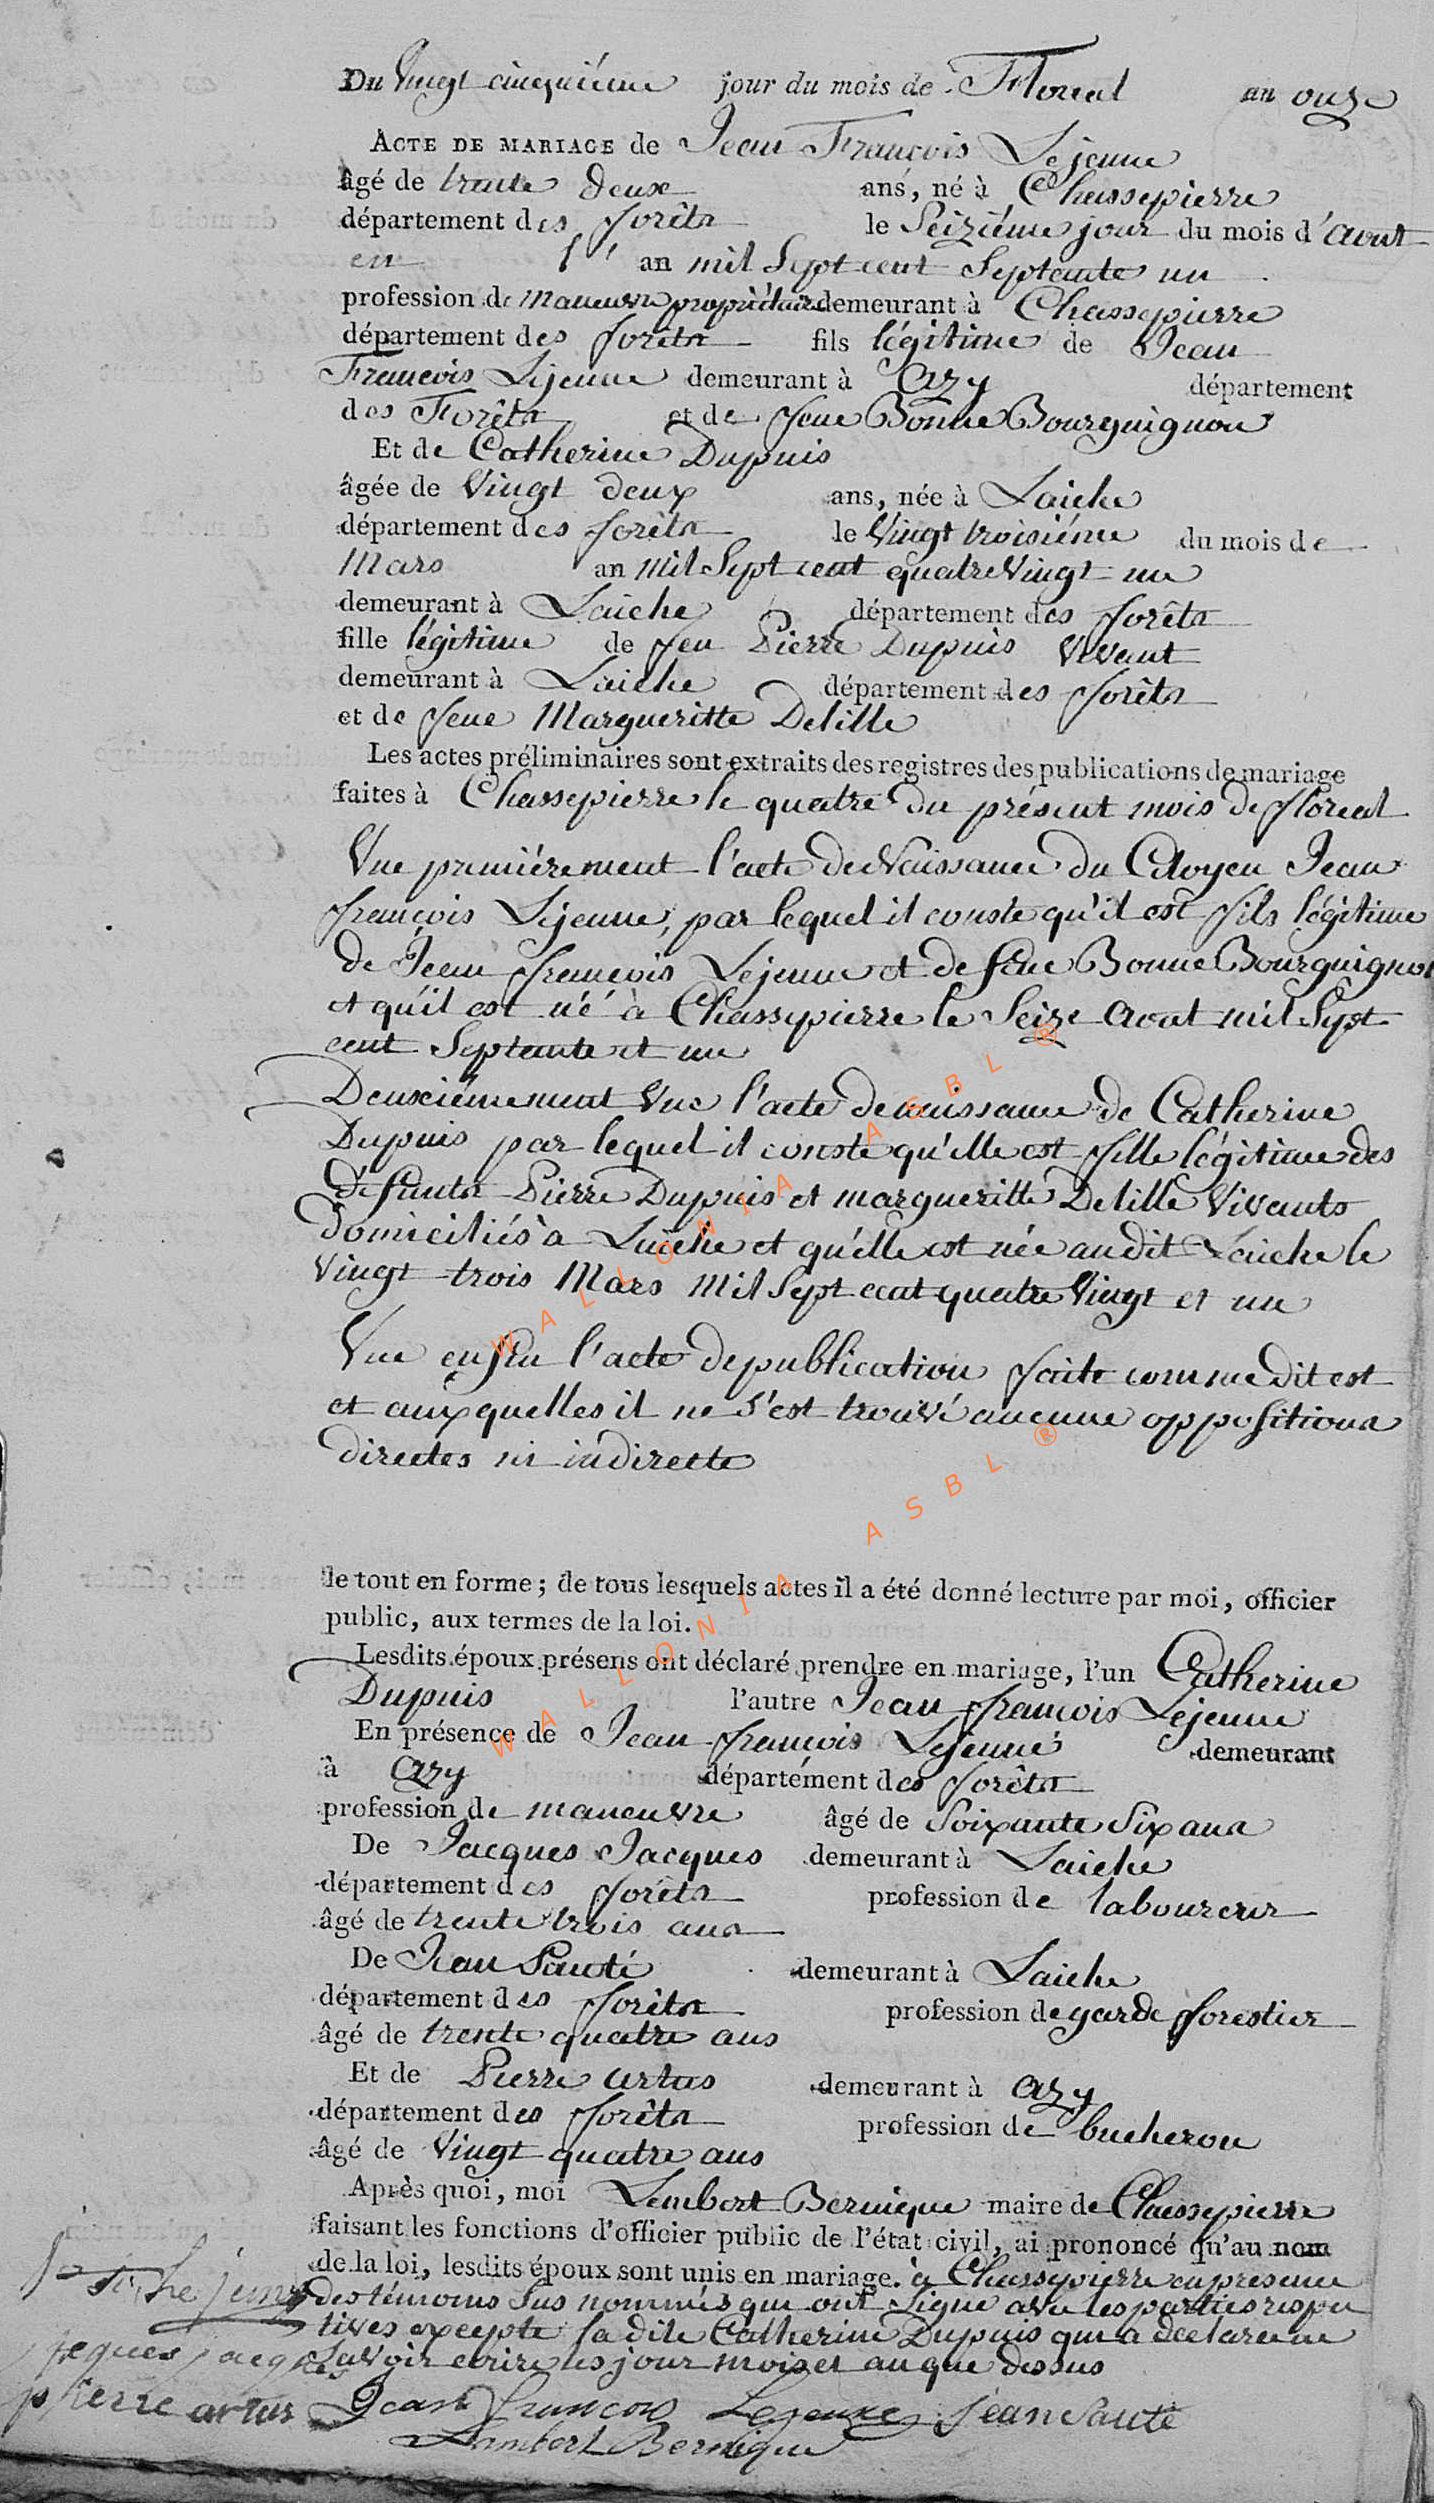 Du Vingt cinquiéme jour du mois de Floreal an onze
ACTE DE MARIAGE de Jean François Lejeune
âgé de trente deux ans, né à Chassepierre
département des forêts le Seiziéme jour du mois d'aout
en l' an mil Sept cent Septante un
profession de maneuvre propriétaire demeurant à Chassepierre
département des forêts fils légitime de Jean
François Lejeune demeurant à Azy département
des Forêts et de feue Bonne Bourguignon
Et de Catherine Dupuis
âgée de Vingt deux ans, née à Laiche
département des forêts le Vingt troisiéme du mois de
Mars an mil Sept cent quatre Vingt un
demeurant à Laiche département des forêts
fille légitime de feu Pierre Dupuis Vivant
demeurant à Laiche département des forêts
et de feue Margueritte Delille
Les actes préliminaires sont extraits des registres des publications de mariage
faites à Chassepierre le quatre du présent mois de floreal
Vue premiérement l'acte de Naissance du Citoyen Jean
françois Lejeune, par lequel il conste qu'il est fils légitime
de Jean françois Lejeune et de feue Bonne Bourguignon
et qu'il est né à Chassepierre le Seize Aout mil Sept
cent Septante et un
Deuxiémement Vue l'acte de naissance de Catherine
Dupuis par lequel il conste qu'elle est fille légitime des
défunts Pierre Dupuis et margueritte Delille Vivants
domiciliés à Laiche et qu'elle est née audit Laiche le
Vingt trois Mars mil Sept cent quatre Vingt et un
Vue enfin l'acte de publication faite comme dit est
et auxquelles il ne s'est trouvé aucune oppositions
directes ni indirecte
le tout en forme ; de tous lesquels actes il a été donné lecture par moi, officier
public, aux termes de la loi.
Lesdits époux présens ont déclaré prendre en mariage, l'un Catherine
Dupuis l'autre Jean françois Lejeune
En présence de Jean françois Lejeune demeurant
à Azy département des forêts
profession de maneuvre âgé de Soixante Six ans
De Jacques Jacques demeurant à Laiche
département des forêts profession de laboureur
âgé de trente trois ans
De Jean Santé demeurant à Laiche
département des forêts profession de garde forestier
âgé de trente quatre ans
Et de Pierre artus demeurant à Azy
département des forêts profession de bucheron
âgé de Vingt quatre ans
Après quoi, moi Lambert Bernique maire de Chassepierre
faisant les fonctions d'officier public de l'état civil, ai prononcé qu'au nom
de la loi, lesdits époux sont unis en mariage. à Chassepierre en presence
des témoins Sus nommés qui ont Signé avec les parties respec
tives excepté la dite Catherine Dupuis qui a declaré ne
Savoir ecrire les jour mois et an que dessus
le jeune
jacques
pierre artus Jean françois Lejeune jean Santé
Lambert Bernique
WALLONIA ASBL ®
WALLONIA ASBL ®